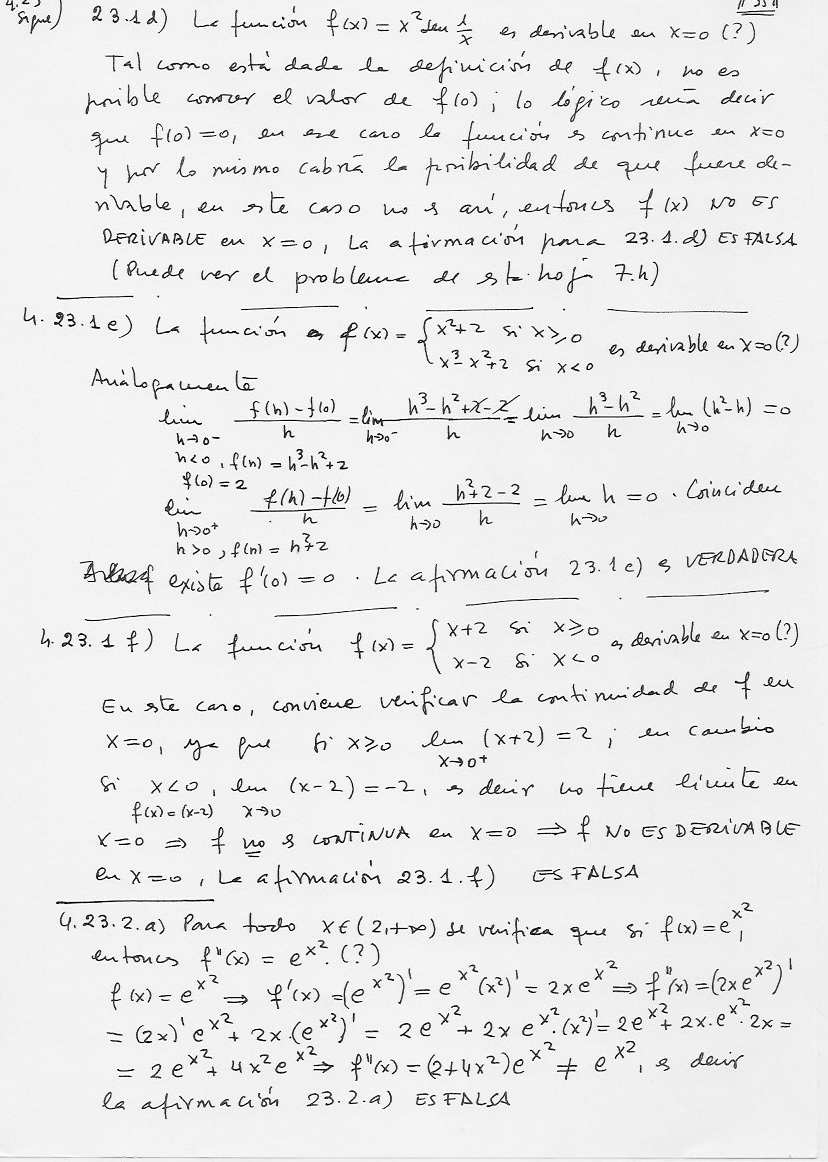 4.23
Sigue)
23.1 d) La función f(x) = x² sen 1/x es derivable en x=0 (?)
Tal como está dada la definición de f(x), no es
posible conocer el valor de f(0); lo lógico sería decir
que f(0)=0, en ese caso la función es continua en x=0
y por lo mismo cabría la posibilidad de que fuere de-
rivable, en este caso no es así, entonces f(x) NO ES
DERIVABLE en x=0, La afirmación para 23.1.d) ES FALSA
(Puede ver el problema de esta hoja 7.h)
4.23.1e) La función es f(x) = { x²+2 si x≥0
x³-x²+2 si x<0 es derivable en x=0 (?)
Análogamente
lim h→0⁻ (f(h)-f(0))/h = lim h→0⁻ (h³-h²+2-2)/h = lim h→0 (h³-h²)/h = lim h→0 (h²-h) = 0
h<0, f(h) = h³-h²+2
f(0) = 2
lim h→0⁺ (f(h)-f(0))/h = lim h→0 (h²+2-2)/h = lim h→0 h = 0. Coinciden
h>0, f(h) = h²+2
existe f'(0) = 0. La afirmación 23.1e) es VERDADERA
4.23.1 f) La función f(x) = { x+2 si x≥0
x-2 si x<0 es derivable en x=0 (?)
En este caso, conviene verificar la continuidad de f en
x=0, ya que si x≥0 lim x→0⁺ (x+2) = 2; en cambio
si x<0, lim x→0 (x-2) = -2, es decir no tiene límite en
f(x)=(x-2)
x=0 ⇒ f no es CONTINUA en x=0 ⇒ f NO ES DERIVABLE
en x=0, La afirmación 23.1.f) ES FALSA
4.23.2.a) Para todo x∈(2,+∞) se verifica que si f(x)=e^x²,
entonces f''(x) = e^x². (?)
f(x) = e^x² ⇒ f'(x) = (e^x²)' = e^x²(x²)' = 2xe^x² ⇒ f''(x) = (2xe^x²)'
= (2x)'e^x² + 2x.(e^x²)' = 2e^x² + 2x e^x².(x²)' = 2e^x² + 2x.e^x².2x =
= 2e^x² + 4x²e^x² ⇒ f''(x) = (2+4x²)e^x² ≠ e^x², es decir
la afirmación 23.2.a) ES FALSA